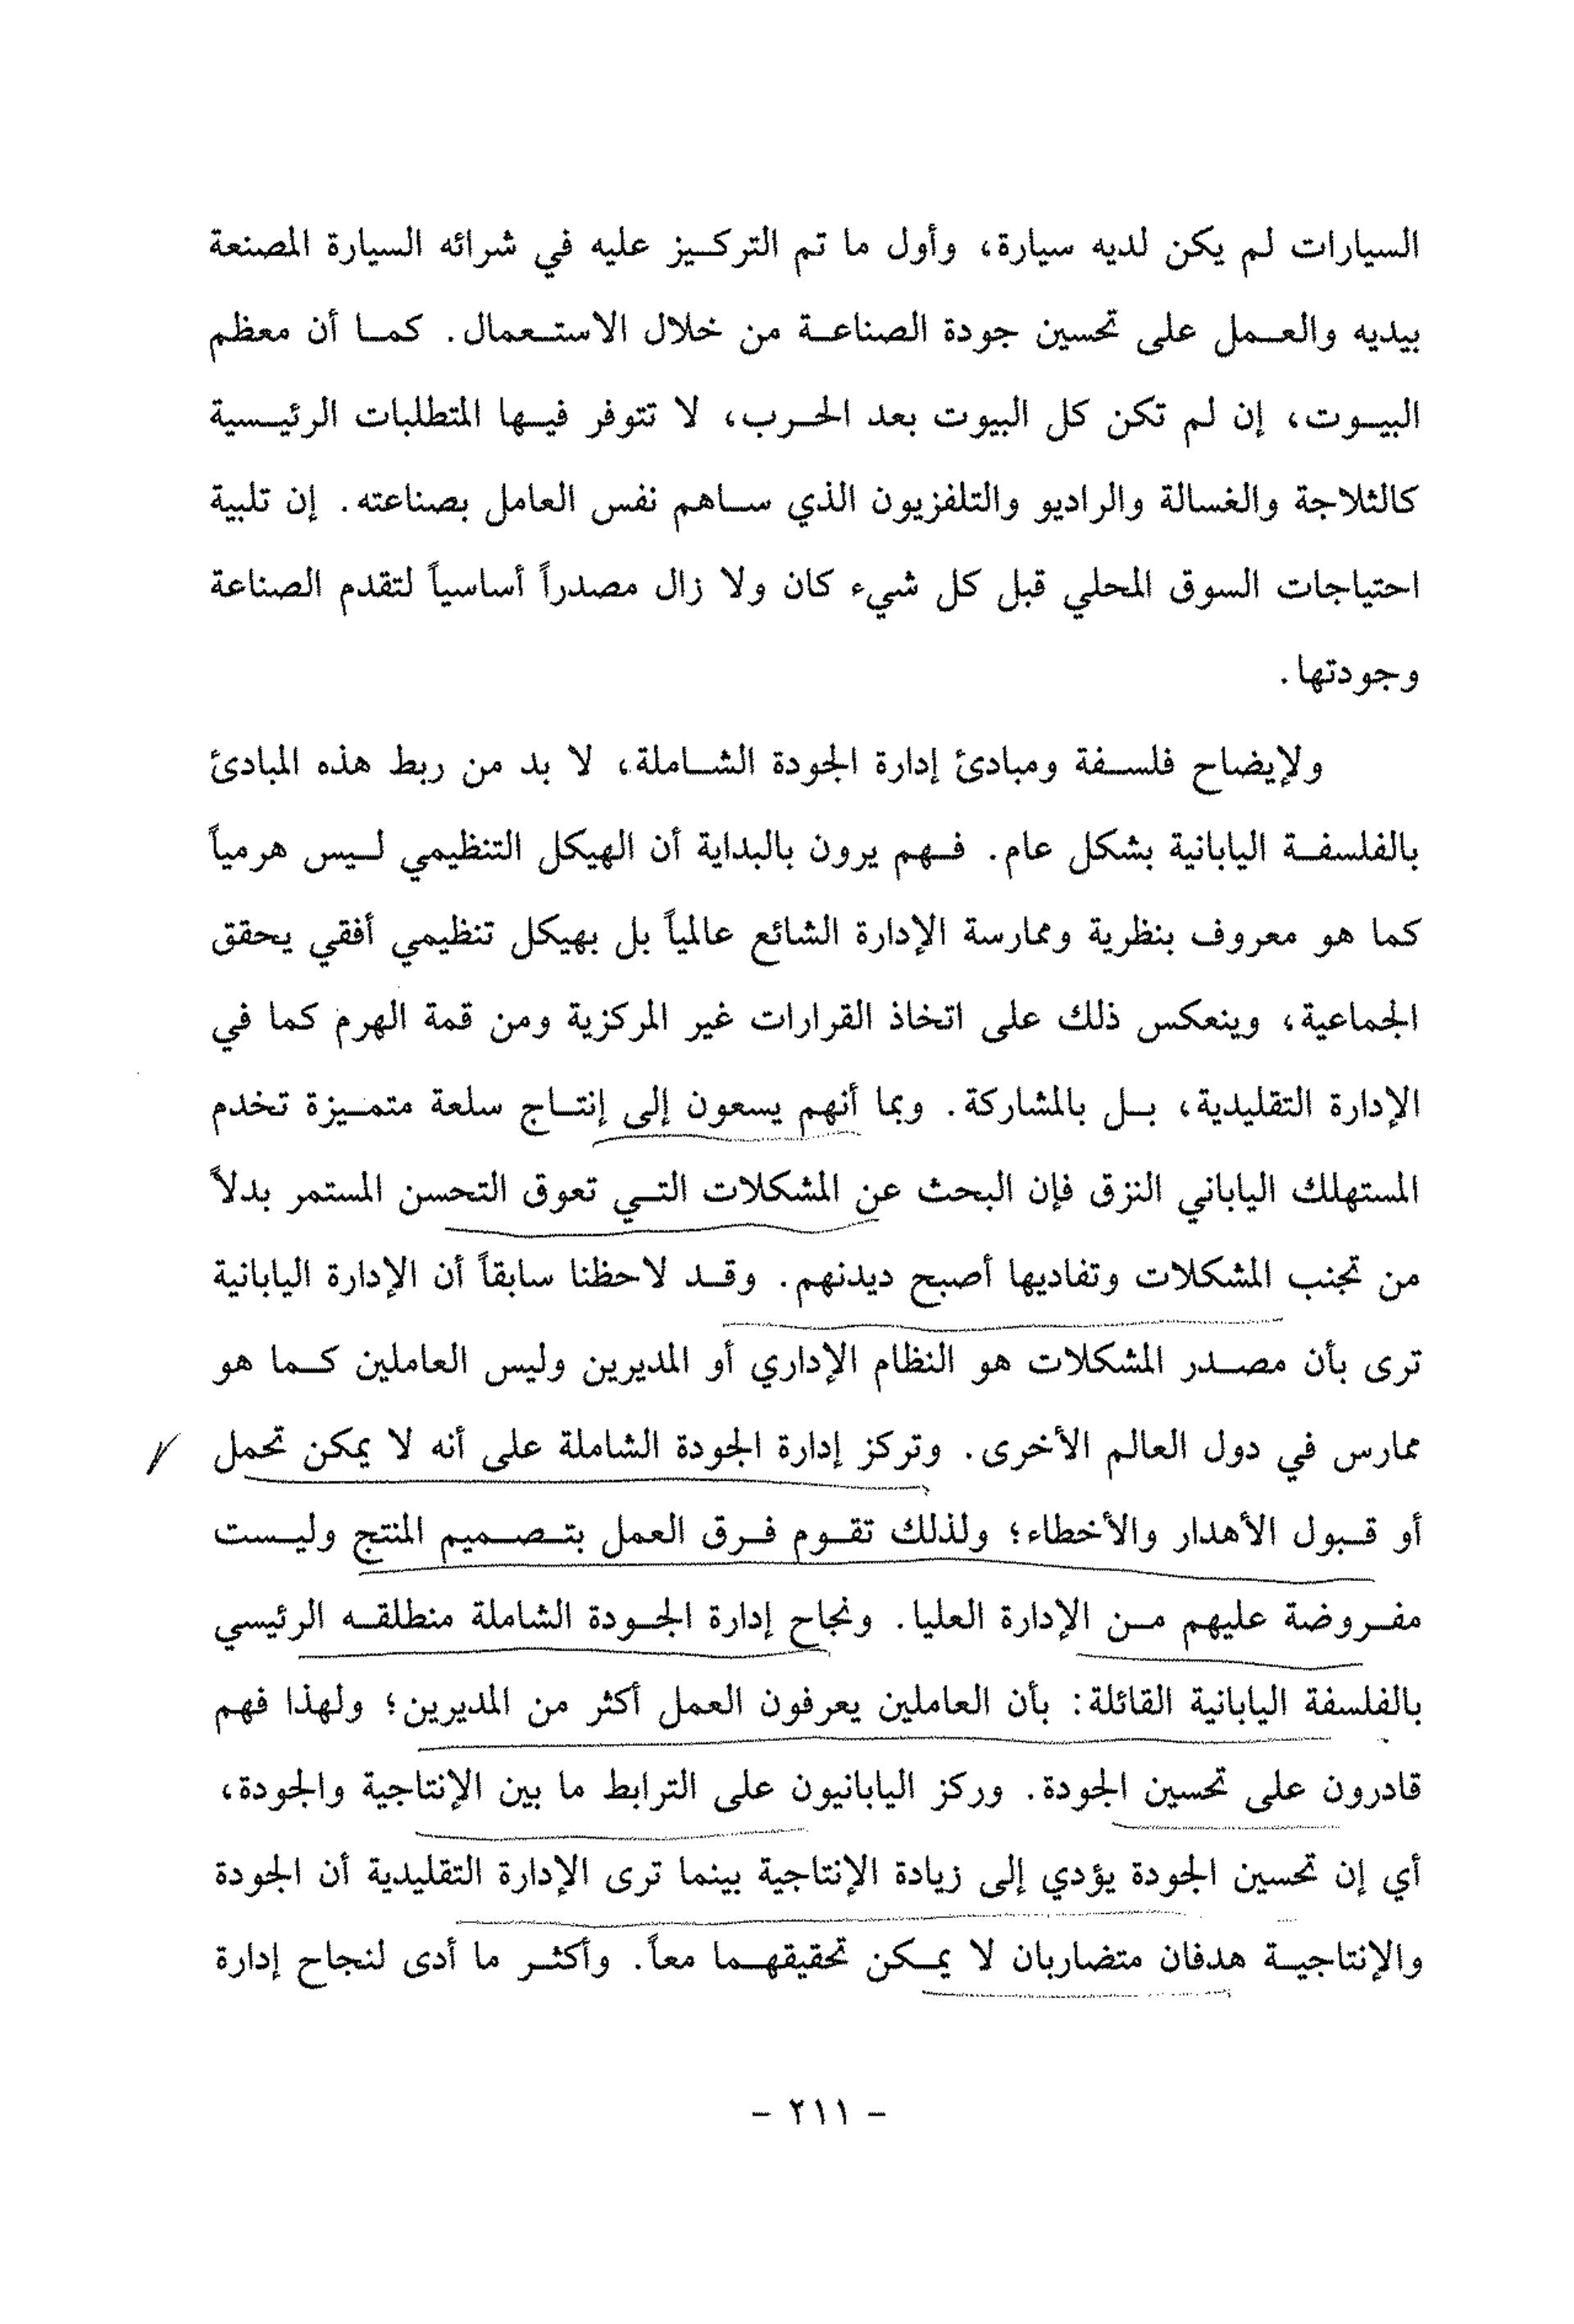 السيارات لم يكن لديه سيارة، وأول ما تم التركيز عليه في شرائه السيارة المصنعة
بيديه والعمل على تحسين جودة الصناعة من خلال الاستعمال. كما أن معظم
البيوت، إن لم تكن كل البيوت بعد الحرب، لا تتوفر فيها المتطلبات الرئيسية
كالثلاجة والغسالة والراديو والتلفزيون الذي ساهم نفس العامل بصناعته. إن تلبية
احتياجات السوق المحلي قبل كل شيء كان ولا زال مصدراً أساسياً لتقدم الصناعة
وجودتها.
ولإيضاح فلسفة ومبادئ إدارة الجودة الشاملة، لا بد من ربط هذه المبادئ
بالفلسفة اليابانية بشكل عام. فهم يرون بالبداية أن الهيكل التنظيمي ليس هرمياً
كما هو معروف بنظرية وممارسة الإدارة الشائع عالمياً بل بهيكل تنظيمي أفقي يحقق
الجماعية، وينعكس ذلك على اتخاذ القرارات غير المركزية ومن قمة الهرم كما في
الإدارة التقليدية، بل بالمشاركة. وبما أنهم يسعون إلى إنتاج سلعة متميزة تخدم
المستهلك الياباني النزق فإن البحث عن المشكلات التي تعوق التحسن المستمر بدلاً
من تجنب المشكلات وتفاديها أصبح ديدنهم. وقد لاحظنا سابقاً أن الإدارة اليابانية
ترى بأن مصدر المشكلات هو النظام الإداري أو المديرين وليس العاملين كما هو
ممارس في دول العالم الأخرى. وتركز إدارة الجودة الشاملة على أنه لا يمكن تحمل
أو قبول الأهدار والأخطاء؛ ولذلك تقوم فرق العمل بتصميم المنتج وليست
مفروضة عليهم من الإدارة العليا. ونجاح إدارة الجودة الشاملة منطلقه الرئيسي
بالفلسفة اليابانية القائلة: بأن العاملين يعرفون العمل أكثر من المديرين؛ ولهذا فهم
قادرون على تحسين الجودة. وركز اليابانيون على الترابط ما بين الإنتاجية والجودة،
أي إن تحسين الجودة يؤدي إلى زيادة الإنتاجية بينما ترى الإدارة التقليدية أن الجودة
والإنتاجية هدفان متضاربان لا يمكن تحقيقهما معاً. وأكثر ما أدى لنجاح إدارة
- ٢١١ -